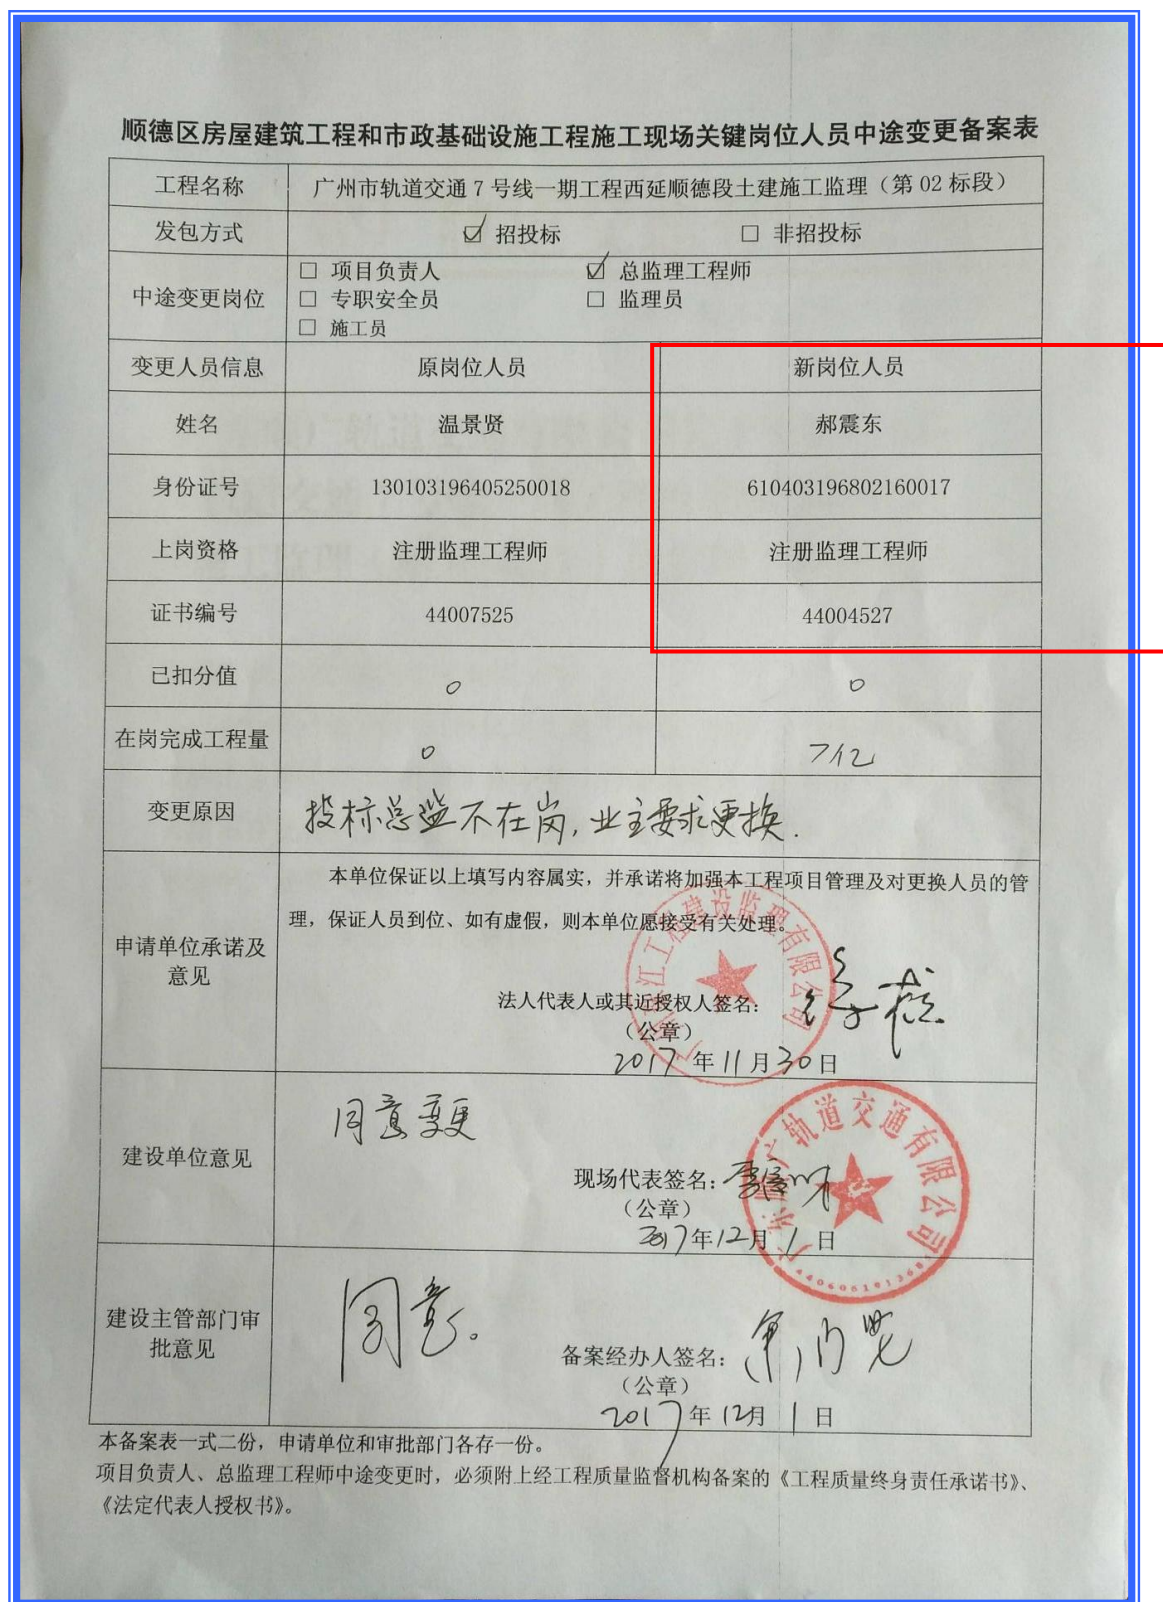 顺德区房屋建筑工程和市政基础设施工程施工现场关键岗位人员中途变更备案表
工程名称 广州市轨道交通 7 号线一期工程西延顺德段土建施工监理（第 02 标段）
发包方式 ☑ 招投标 □ 非招投标
中途变更岗位
□ 项目负责人 ☑ 总监理工程师
□ 专职安全员 □ 监理员
□ 施工员
变更人员信息 原岗位人员 新岗位人员
姓名 温景贤 郝震东
身份证号 130103196405250018 610403196802160017
上岗资格 注册监理工程师 注册监理工程师
证书编号 44007525 44004527
已扣分值 0 0
在岗完成工程量 0 7亿
变更原因 投标总监不在岗，业主要求更换.
申请单位承诺及
意见
本单位保证以上填写内容属实，并承诺将加强本工程项目管理及对更换人员的管
理，保证人员到位、如有虚假，则本单位愿接受有关处理。
江工程建设监理有限公司
法人代表人或其近授权人签名：
（公章）
2017 年 11 月 30 日
建设单位意见
同意变更
现场代表签名：
（公章）
2017年12月 1 日
轨道交通有限公司
建设主管部门审
批意见
同意。
备案经办人签名：
（公章）
2017 年 12月 1 日
本备案表一式二份，申请单位和审批部门各存一份。
项目负责人、总监理工程师中途变更时，必须附上经工程质量监督机构备案的《工程质量终身责任承诺书》、
《法定代表人授权书》。